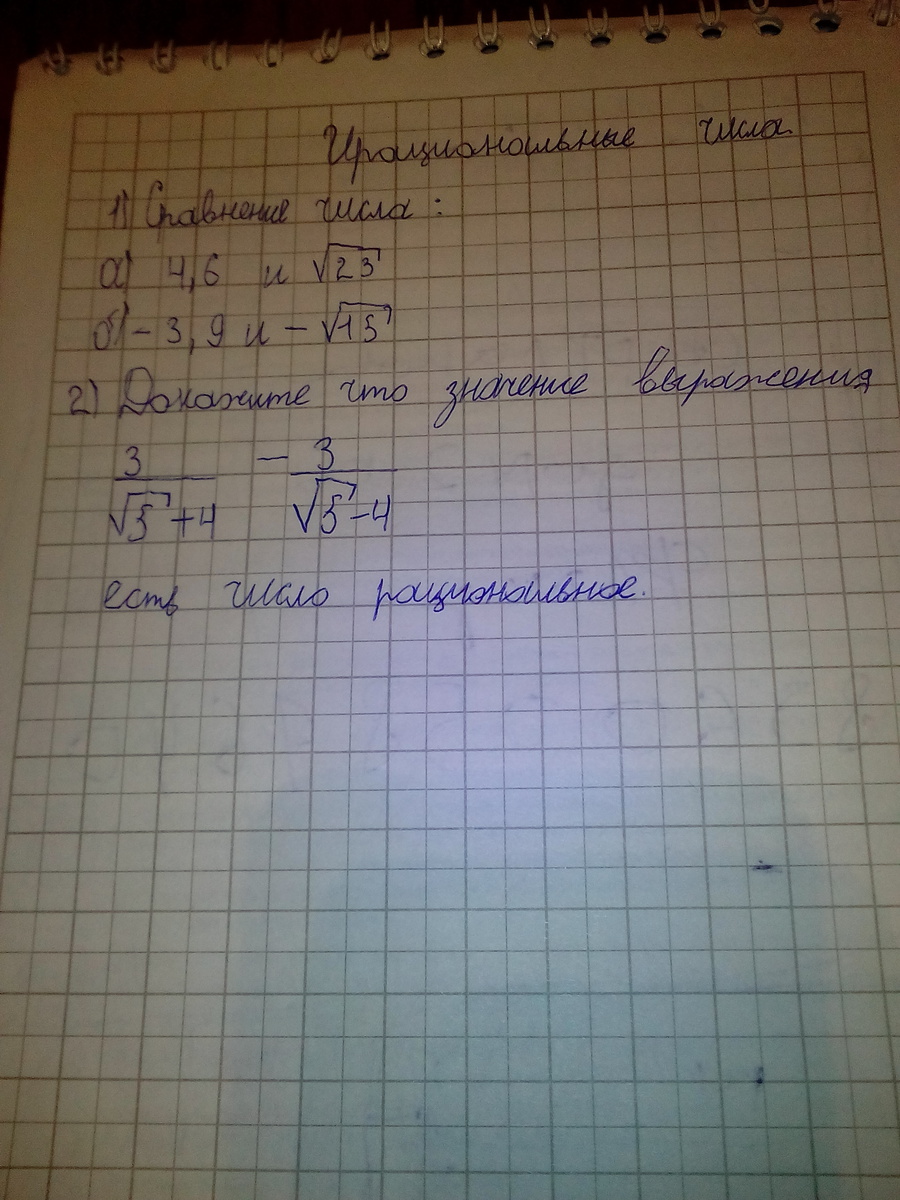 Ирациональные числа
1) Сравнение числа:
а) 4,6 и √23
б) -3,9 и -√15
2) Докажите что значение выражения
3/(√5+4) - 3/(√5-4)
есть число рациональное.